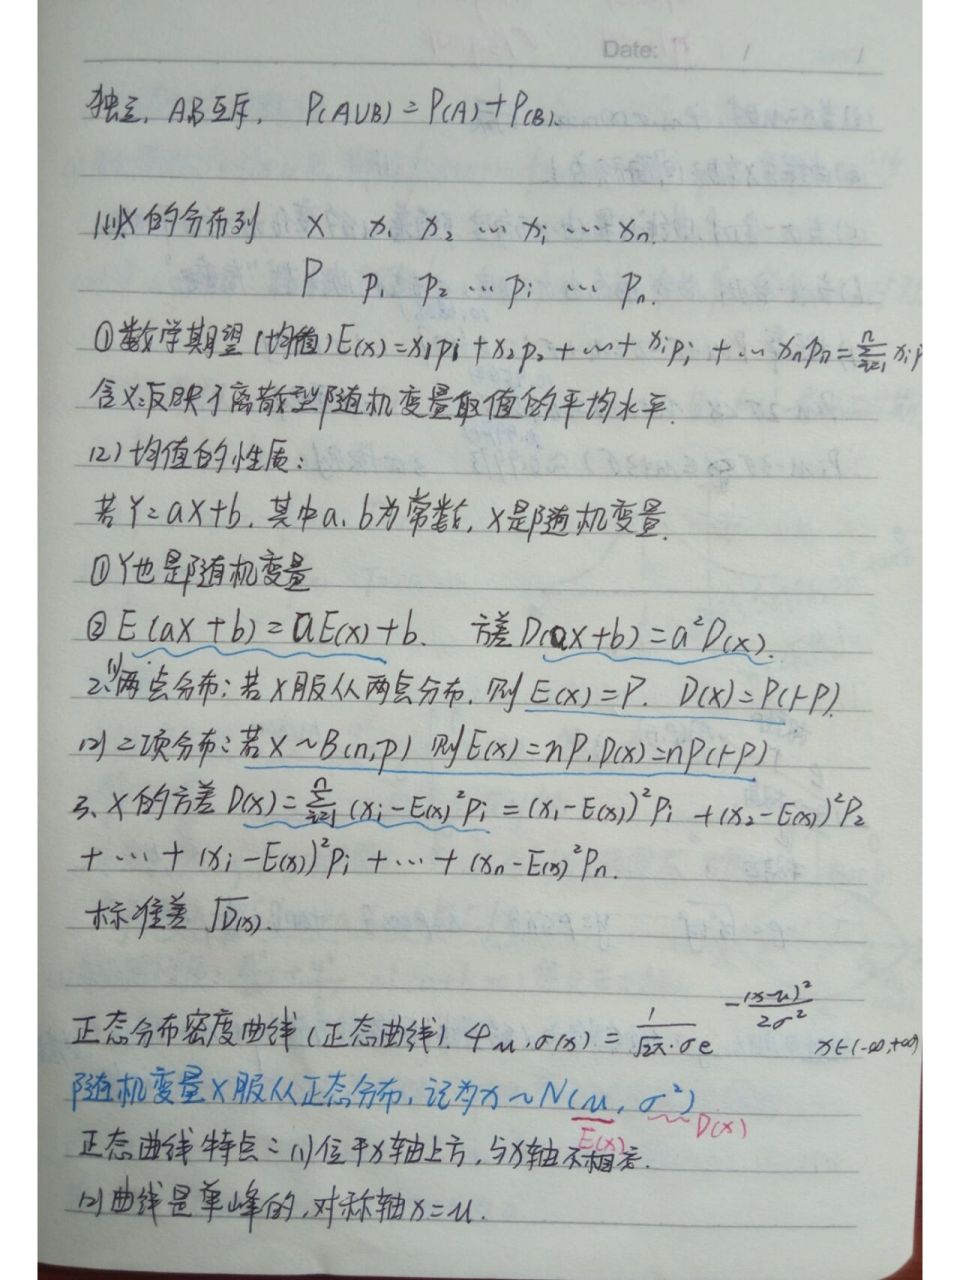 Date: / /
独立, A,B互斥, P(A∪B)=P(A)+P(B).
(1)X的分布列 X x₁ x₂ … xᵢ … xₙ.
P p₁ p₂ … pᵢ … pₙ.
①数学期望(均值)E(x)=x₁p₁+x₂p₂+…+xᵢpᵢ+…xₙpₙ=∑ⁿᵢ₌₁xᵢp
含义:反映了离散型随机变量取值的平均水平.
(2)均值的性质:
若Y=aX+b,其中a、b为常数,X是随机变量.
①Y也是随机变量
②E(aX+b)=aE(x)+b. 方差D(aX+b)=a²D(x).
2.(1)两点分布:若X服从两点分布,则E(x)=P. D(x)=P(1-P).
(2)二项分布:若X~B(n,p) 则E(x)=nP.D(x)=nP(1-P)
3、X的方差D(x)=∑ⁿᵢ₌₁(xᵢ-E(x)²Pᵢ=(x₁-E(x))²Pᵢ+(x₂-E(x))²P₂
+…+(xᵢ-E(x))²Pᵢ+…+(xₙ-E(x)²Pₙ.
标准差√D(x).
正态分布密度曲线(正态曲线).φμ,σ(x)=1/(√2π·σ)e^-(x-μ)²/2σ² x∈(-∞,+∞)
随机变量X服从正态分布,记为x~N(μ,σ²)
E(x) D(x)
正态曲线特点:(1)位于x轴上方,与x轴不相交.
(2)曲线是单峰的,对称轴x=μ.